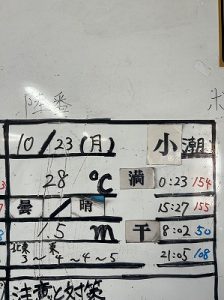 陸番
10/23(月) 小潮
28 ℃ 満 0:23 154
曇/晴 15:27 155
1.5 m 干 8:02 50
北東 東
3~4~4~5 21:05 108
注意と対策